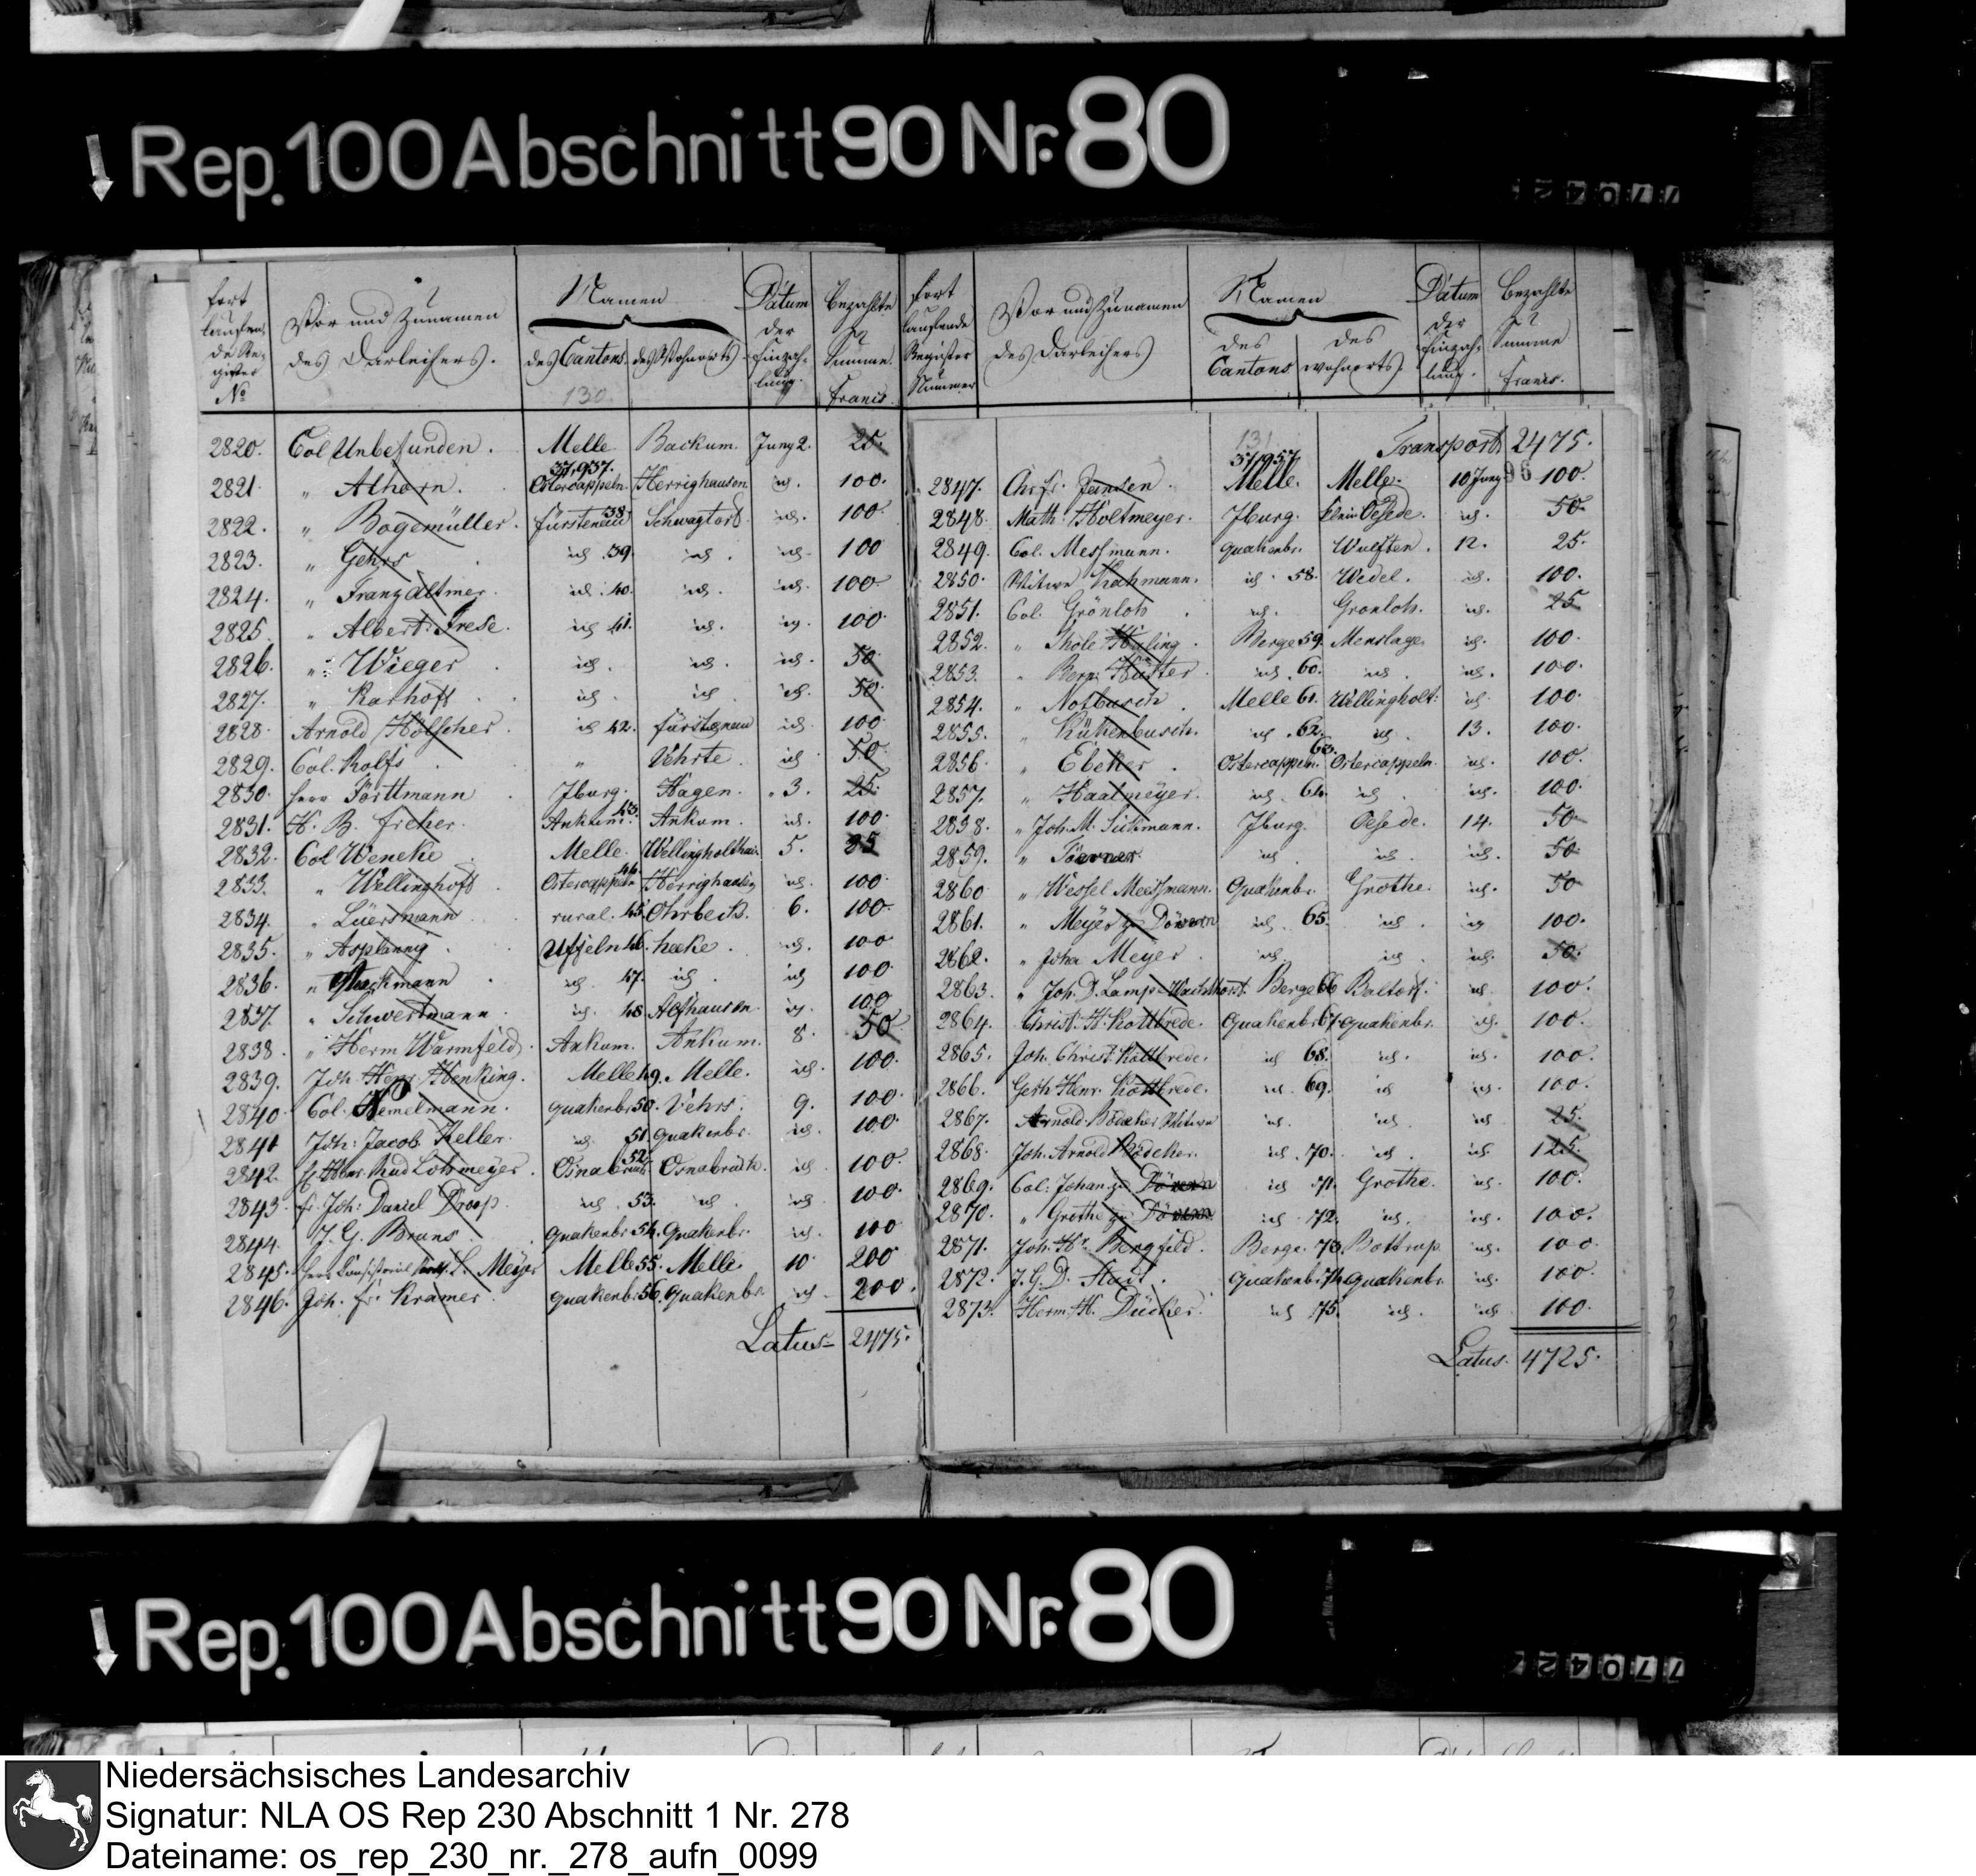 Rep. 100 Abschnitt 90 Nr. 80
fort laufende Register No
Vor und Zunamen des Darleihers.
Namen
des Cantons. des Wohnorts
Datum der Einzahlung.
Bezahlte Summe. Francs.
130
2820. Col Unbefunden. Melle Backum. Juny 2. 25.
37,937.
2821. " Athorn. Ostercappeln. Herrighausen id. 100.
2822. " Bogemüller. Fürstenau 38 Schwagtorf id. 100.
2823. " Gehrs id 39. id. id. 100
2824. " Franz Altmer. id. 40. id. id. 100.
2825. " Albert Frese. id 41. id. id. 100.
2826. " Wieger id. id. id. 50
2827. " Karhoff id. id id. 50.
2828. Arnold Hölscher id 42. Fürstenau id. 100.
2829. Col. Rolfs " Vehrte. id 50.
2830. Herr Förttmann Jburg. Hagen. 3. 25.
2831. H. B. Freher. Ankum. 43. Ankum. id. 100.
2832. Col Weneke Melle. Wellingholthau. 5. 25
2833. " Wellinghoff Ostercappeln 44. Herrighausen id. 100.
2834. " Lüersmann rural. 45. Ohrbeck. 6. 100.
2835. " Asplanig Uffeln 46. heeke. id. 100
2836. " Quackmann id. 47. id. id 100.
2837. " Schwertmann id. 48 Alfhausen. id. 100
2838. " Herm Warmfeld Ankum. Ankum. 8. 50
2839. Joh. Herr Henking. Melle 49. Melle. id. 100.
2840. Col. Hemelmann. quakenbr 50. Vehrs. 9. 100.
2841 Joh: Jacob Keller. id. 51. quakenbr. id. 100.
2842. Rud Lohmeyer. Osnabrück 52. Osnabrück. id. 100.
2843. fr. Joh: Daniel Droop. id. 53. id. id. 100.
2844. J. G. Bruns. quakenbr. 54. Quakenbr. id. 100
2845. Herr Consistorial L. Meyer Melle 55. Melle. 10. 200
2846. Joh. fr. Kramer. quakenbr. 56. quakenbr. id. 200.
Latus 2475.
fort laufende Register Nummer
Vor und Zunamen des Darleihers
Namen
des Cantons des wohnorts.
Datum der Einzahlung.
Bezahlte Summe Francs.
131
Transport 2475.
37,957.
2847. Chr. fr. Jansen. Melle. Melle. 10 Juny 96 100.
2848. Math: Holtmeyer. Jburg. klein Oesede. id. 50.
2849. Col. Messmann. quakenbr. Wulften. 12. 25.
2850. Witwe Hahmann. id. 58. Wedel. id. 100.
2851. Col. Grönloh id. Gronloh. id. 25
2852. " Thole Haling. Berge 59. Menslage. id. 100.
2853. " Bern: Hutter id. 60. id. id. 100.
2854. " Notbusch Melle 61. Wellingholt: id. 100.
2855. " Kühenbusch. id. 62. id. 13. 100.
2856. " Ebeker. Ostercappeln. 63. Ostercappeln. id. 100.
2857. " Haalmeyer. id. 64. id. id. 100.
2858. " Joh. M. Sickmann. Jburg. Oesede. 14. 50.
2859. " Töerner id. id. id. 50.
2860 " Wessel Messmann. Quakenbr. Grothe. id. 50
2861. " Meyer zu Dövern id. 65. id. id 100.
2862. " Joha Meyer id. id. id. 50.
2863. " Joh. D. Lamp-Wachthorst. Berge 66 Baltorf. id. 100.
2864. Christ. H. Kottbrede. Quakenbr 67. quakenbr. id. 100.
2865. Joh. Christ. Kottbrede. id 68. id. id. 100.
2866. Gerh Henr. Kottbrede. id. 69. id id. 100.
2867. Arnold Bödeker Witwe id. id. id 25.
2868. Joh. Arnold Bödeker. id. 70. id. id. 125.
2869. Col. Johan zu Dövern id 71. Grothe. id. 100.
2870. " Grothe zu Dövern id 72. id. id. 100.
2871. Joh. Hr. Bergfeld. Berge. 73. Bottrup. id. 100
2872. J. G. D. Stadt. Quakenbr. 74. quakenbr. id. 100.
2873. Herm. H. Dücker. id 75. id. id 100.
Latus. 4725.
Rep. 100 Abschnitt 90 Nr. 80
Niedersächsisches Landesarchiv
Signatur: NLA OS Rep 230 Abschnitt 1 Nr. 278
Dateiname: os_rep_230_nr._278_aufn_0099